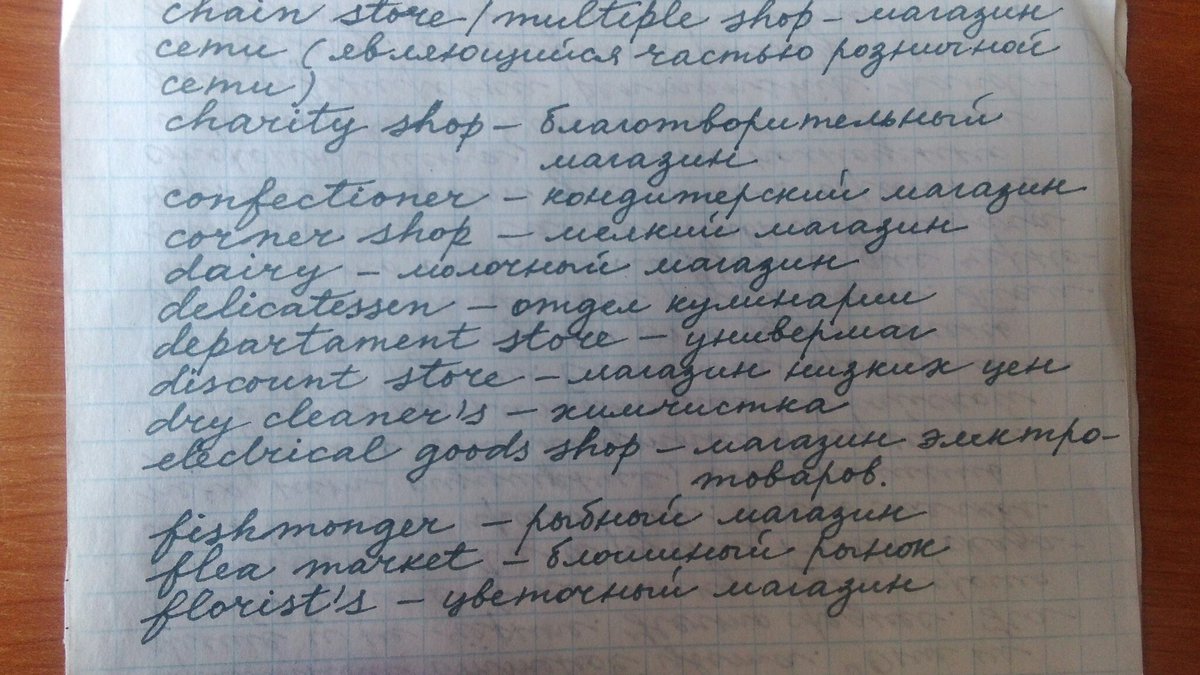 chain store / multiple shop – магазин
сети (являющийся частью розничной
сети)
charity shop – благотворительный
магазин
confectioner – кондитерский магазин
corner shop – мелкий магазин
dairy – молочный магазин
delicatessen – отдел кулинарии
departament store – универмаг
discount store – магазин низких цен
dry cleaner's – химчистка
electrical goods shop – магазин электро-
товаров.
fishmonger – рыбный магазин
flea market – блошиный рынок
florist's – цветочный магазин